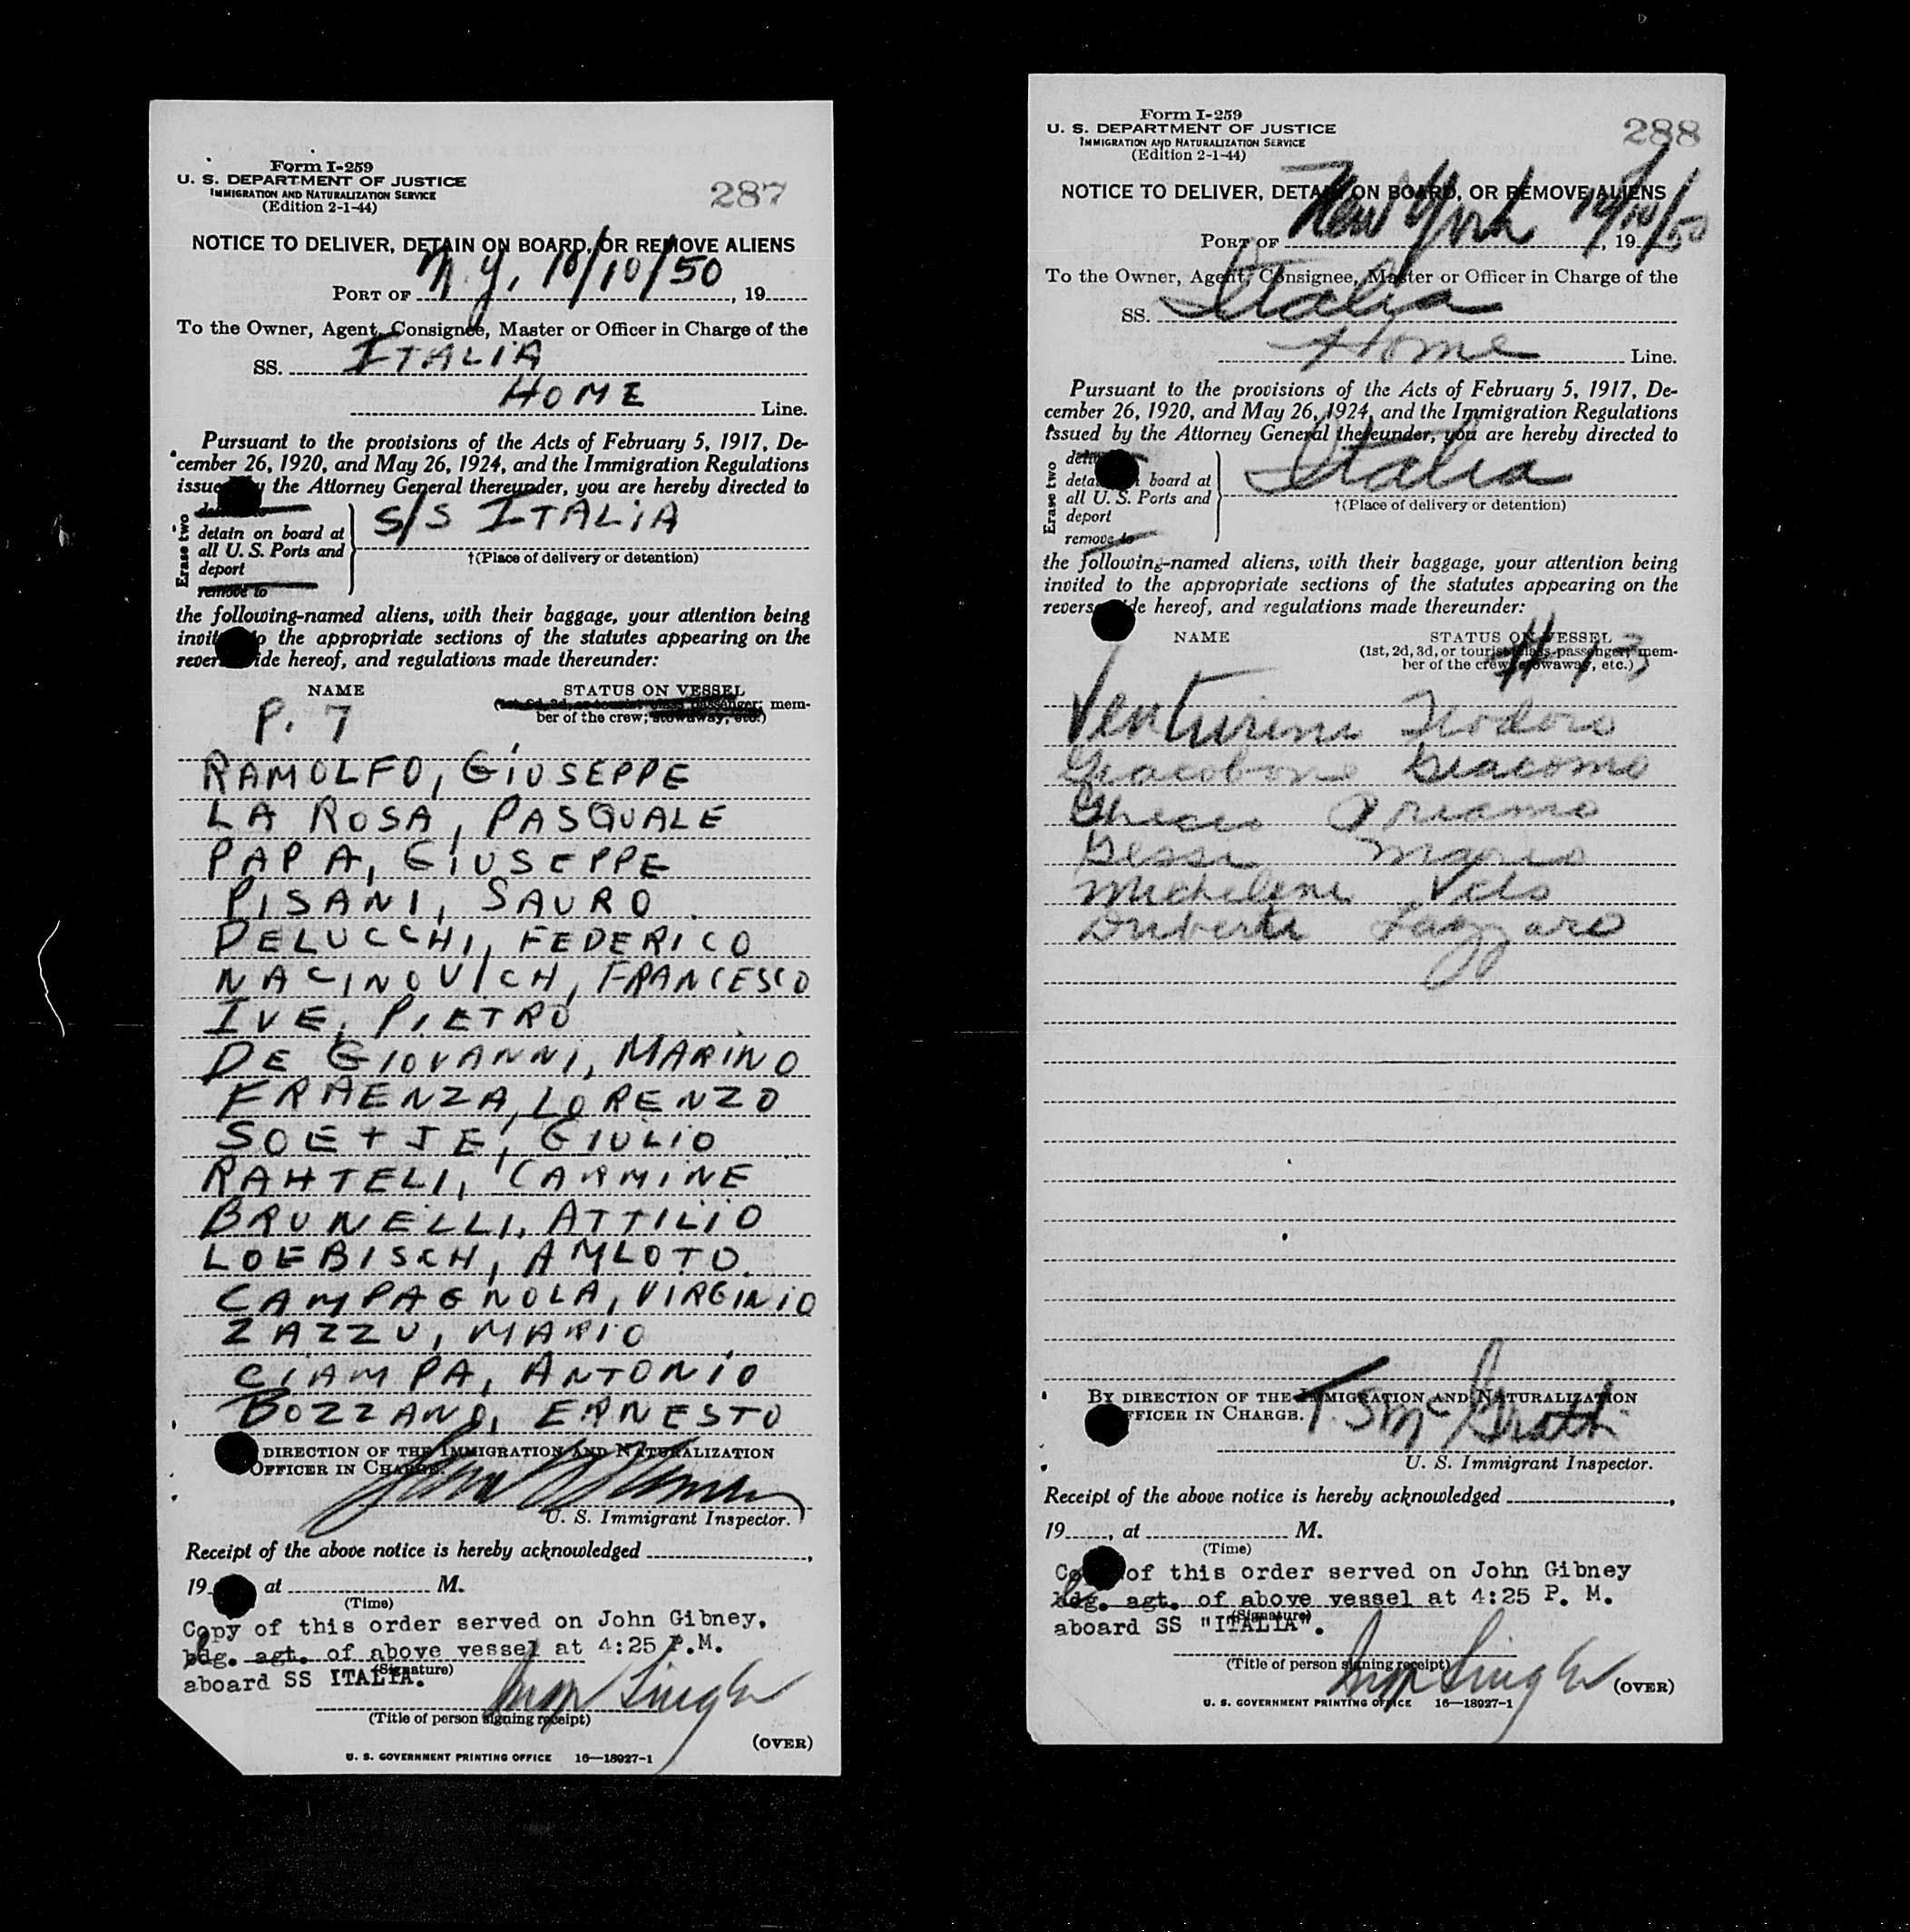 Form I-259
U. S. DEPARTMENT OF JUSTICE
IMMIGRATION AND NATURALIZATION SERVICE
(Edition 2-1-44)
287
NOTICE TO DELIVER, DETAIN ON BOARD, OR REMOVE ALIENS
PORT OF N.Y. 10/10/50, 19
To the Owner, Agent, Consignee, Master or Officer in Charge of the
SS. ITALIA
HOME Line.
Pursuant to the provisions of the Acts of February 5, 1917, De-
cember 26, 1920, and May 26, 1924, and the Immigration Regulations
issued by the Attorney General thereunder, you are hereby directed to
Erase two
detain on board at
all U. S. Ports and
deport
remove to
S/S ITALIA
†(Place of delivery or detention)
the following-named aliens, with their baggage, your attention being
invited to the appropriate sections of the statutes appearing on the
reverse side hereof, and regulations made thereunder:
NAME STATUS ON VESSEL
(1st, 2d, 3d, or tourist class passenger; mem-
ber of the crew; stowaway, etc.)
P. 7
RAMOLFO, GIUSEPPE
LA ROSA, PASQUALE
PAPA, GIUSEPPE
PISANI, SAURO
DELUCCHI, FEDERICO
NACINOVICH, FRANCESCO
IVE, PIETRO
DE GIOVANNI, MARINO
FRAENZA, LORENZO
SOE+JE, GIULIO
RAHTELI, CARMINE
BRUNELLI, ATTILIO
LOEBISCH, AMLOTO
CAMPAGNOLA, VIRGINIO
ZAZZU, MARIO
CIAMPA, ANTONIO
BOZZANO, ERNESTO
DIRECTION OF THE IMMIGRATION AND NATURALIZATION
OFFICER IN CHARGE.
U. S. Immigrant Inspector.
Receipt of the above notice is hereby acknowledged
19 at M.
(Time)
Copy of this order served on John Gibney,
bdg. agt. of above vessel at 4:25 P.M.
aboard SS ITALIA.
(Signature)
(Title of person signing receipt)
(OVER)
U. S. GOVERNMENT PRINTING OFFICE 16—18927-1
Form I-259
U. S. DEPARTMENT OF JUSTICE
IMMIGRATION AND NATURALIZATION SERVICE
(Edition 2-1-44)
288
NOTICE TO DELIVER, DETAIN ON BOARD, OR REMOVE ALIENS
PORT OF New York 10/10/50, 19
To the Owner, Agent, Consignee, Master or Officer in Charge of the
SS. Italia
Home Line.
Pursuant to the provisions of the Acts of February 5, 1917, De-
cember 26, 1920, and May 26, 1924, and the Immigration Regulations
issued by the Attorney General thereunder, you are hereby directed to
Erase two
detain on board at
all U. S. Ports and
deport
remove to
Italia
†(Place of delivery or detention)
the following-named aliens, with their baggage, your attention being
invited to the appropriate sections of the statutes appearing on the
reverse side hereof, and regulations made thereunder:
NAME STATUS ON VESSEL
(1st, 2d, 3d, or tourist class passenger; mem-
ber of the crew; stowaway, etc.)
Venturini Teodoro
Giacobone Giacomo
Priamo
Gessi Mario
Michelini
Lazzaro
BY DIRECTION OF THE IMMIGRATION AND NATURALIZATION
OFFICER IN CHARGE.
T. S McGrath
U. S. Immigrant Inspector.
Receipt of the above notice is hereby acknowledged
19, at M.
(Time)
Copy of this order served on John Gibney
bdg. agt. of above vessel at 4:25 P. M.
aboard SS "ITALIA".
(Signature)
(Title of person signing receipt)
(OVER)
U. S. GOVERNMENT PRINTING OFFICE 16—18927-1